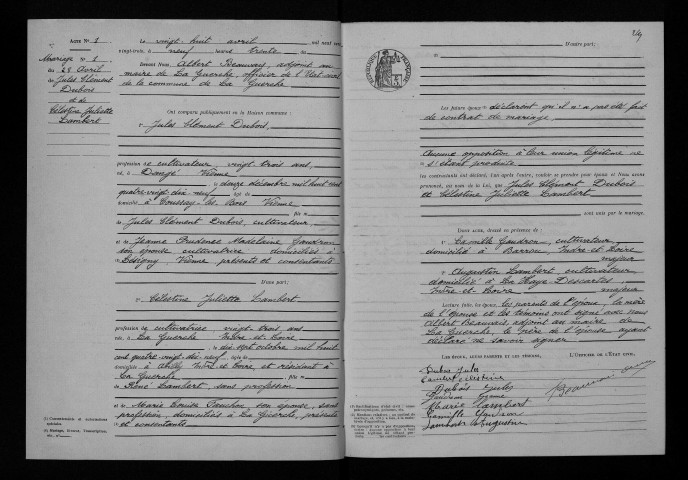 Acte N° 1
Mariage N° 1
du 28 Avril
de Jules Clément
Dubois
et de
Célestine Juliette
Lambert
Le vingt-huit avril mil neuf cent
vingt-trois, à neuf heures trente
Devant Nous Albert Beauvais, adjoint au
maire de La Guerche, officier de l'Etat civil
de la commune de La Guerche
Ont comparu publiquement en la Maison commune :
1° Jules Clément Dubois,
profession de cultivateur, vingt trois ans,
né à Dangé Vienne
le douze décembre mil huit cent
quatre-vingt dix neuf
domicilié à Coussay-les-Bois Vienne
fils de
Jules Clément Dubois, cultivateur,
et de Jeanne Prudence Madeleine Gaudron
son épouse, cultivatrice, domiciliés à
Lésigny, Vienne, présents et consentants
D'une part ;
2° Célestine Juliette Lambert
profession de cultivatrice vingt-trois ans
née à La Guerche Indre et Loire
le dix sept octobre mil huit
cent quatre-vingt dix neuf,
domiciliée à Abilly Indre et Loire et résidant à
La Guerche
fille de René Lambert, sans profession
et de Marie Louise Fauchon, son épouse, sans
profession, domiciliés à La Guerche, présents
et consentants
249
D'autre part ;
RÉPUBLIQUE FRANÇAISE
Les futurs époux déclarent qu'il n'a pas été fait
de contrat de mariage.
Aucune opposition à leur union légitime ne
s'étant produite
les contractants ont déclaré, l'un après l'autre, vouloir se prendre pour époux et Nous avons
prononcé, au nom de la Loi, que Jules Clément Dubois
et Célestine Juliette Lambert
sont unis par le mariage.
Dont acte, dressé en présence de :
1° Camille Gaudron, cultivateur,
domicilié à Barrou Indre-et-Loire
majeur
2° Augustin Lambert cultivateur
domicilié à La Haye Descartes
Indre-et-Loire majeur
Lecture faite, les époux, les parents de l'époux, la mère
de l'épouse et les témoins ont signé avec nous
Albert Beauvais adjoint au maire de
La Guerche, le père de l'épouse ayant
déclaré ne savoir signer
LES ÉPOUX, LEURS PARENTS ET LES TÉMOINS,
L'OFFICIER DE L'ÉTAT CIVIL,
Dubois Jules
Lambert Célestine
Dubois Jules
Gaudron Jeanne
Marie Lambert
Camille Gaudron
Lambert Augustin
Beauvais